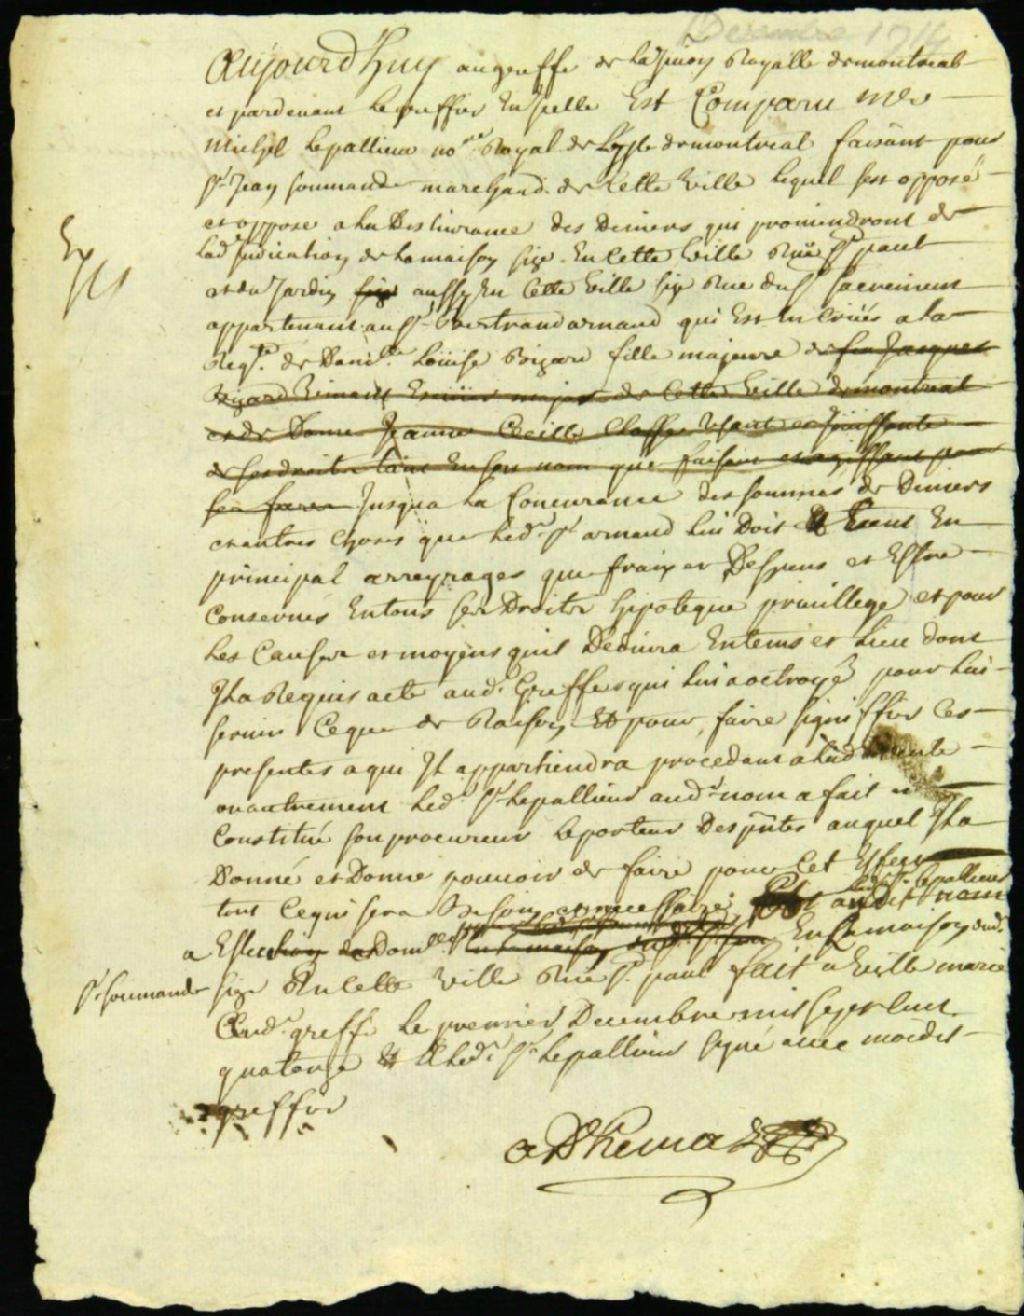 Decembre 1714
Aujourd'huy au greffe de la Jurion Royalle de montreal
et pardevant le greffier En Icelle Est Comparu me
Michel Lepallieur no.re Royal de l'Isle de montreal faisant pour
Sr. Jean soumande marchand de Cette Ville lequel s'est opposé
et oppose a la Deslivrance des Deniers qui proviendront de
Ladjudication de la maison size En Cette Ville Rüe St. paul
et du Jardin size aussy En Cette Ville size Rue du St. sacrement
appartenant au Sr. Bertrand arnaud qui Est En Criées a la
Reqte. de Dam.lle Loüise Bizard fille majeure de feu Jacques
Bizard Vivant major de Cette Ville de montreal
et de Dame Jeanne Cecille Closse Usant et Joüissante
de ses droits tant En son nom que faisant et agissant pour
ses freres Jusqua la Concurance des sommes de Deniers
et autres choses que led. Sr. arnaud lui Doit En
principal arreyrages que fraix et Despens et Estre
Conservé En tous ses Droits hipoteque privillege et pour
Les Causes et moyens quil Déduira En tems et Lieu dont
Il a Requis acte aud. Greffe qui lui a octroyé pour lui
servir Ce que de Raison Et pour faire signiffier Ces
presentes a qui Il appartiendra procedant a lad. vente
ou autrement led. Sr. Lepallieur aud. nom a fait et
Constitué son procureur le porteur Des pntes auquel Il a
Donné et Donne pouvoir de faire pour Cet Effect
led. Sr. Lepallieur
tout Ce qui sera Besoin et necessaire Et audit nom
a Eslu Dom.lle En sa maison dud.
Sr. soumande size En Cette Ville Rüe St. paul fait a Ville marie
Aud. greffe le premier Decembre mil sept Cent
quatorze Et A led. Sr. Lepallieur signé avec moidit
greffier
Ex